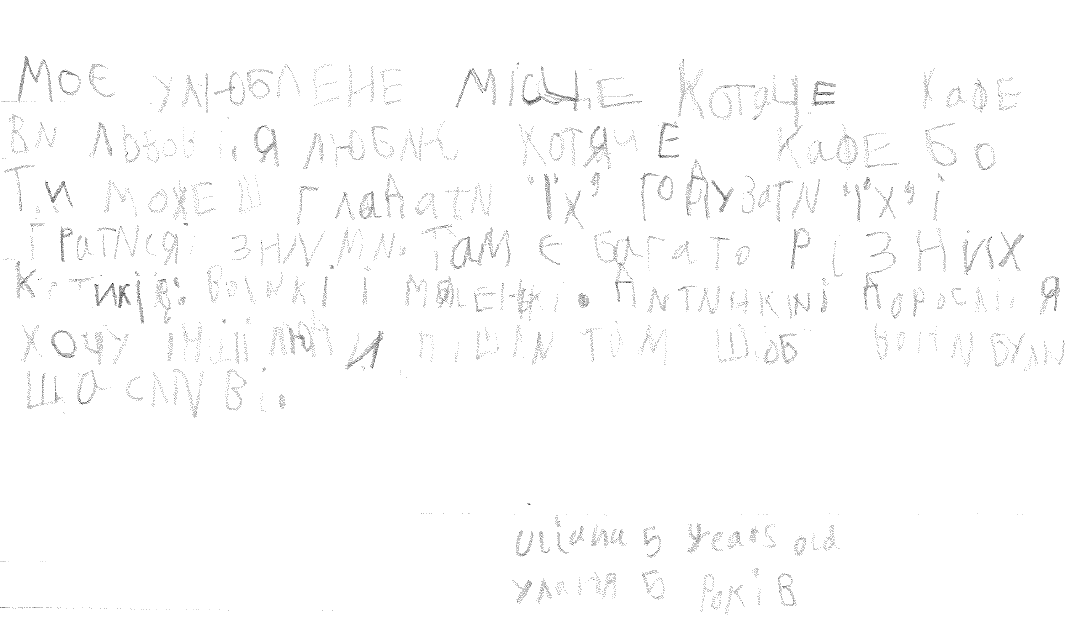 МОЄ УЛЮБЛЕНЕ МІСЦЕ КОТЯЧЕ КАФЕ
ВИ ЛЬВОВІ. Я ЛЮБЛЮ КОТЯЧЕ КАФЕ БО
ТИ МОЖЕШ ГЛАДАТИ "ЇХ", ГОДУЗАТИ "ЇХ", І
ІГРАТИСЯ З НИМИ. ТАМ Є БАГАТО РІЗНИХ
КОТИКІВ: І МАЛЕНЬКІ. І ДОРОСЛІ. Я
ХОЧУ ІНШІ ЛЮДИ ПІШЛИ ТОМ ШОБ ВОНИ БУЛИ
ЩАСЛИВІ.
Uliana 5 years old
Уляна 5 років